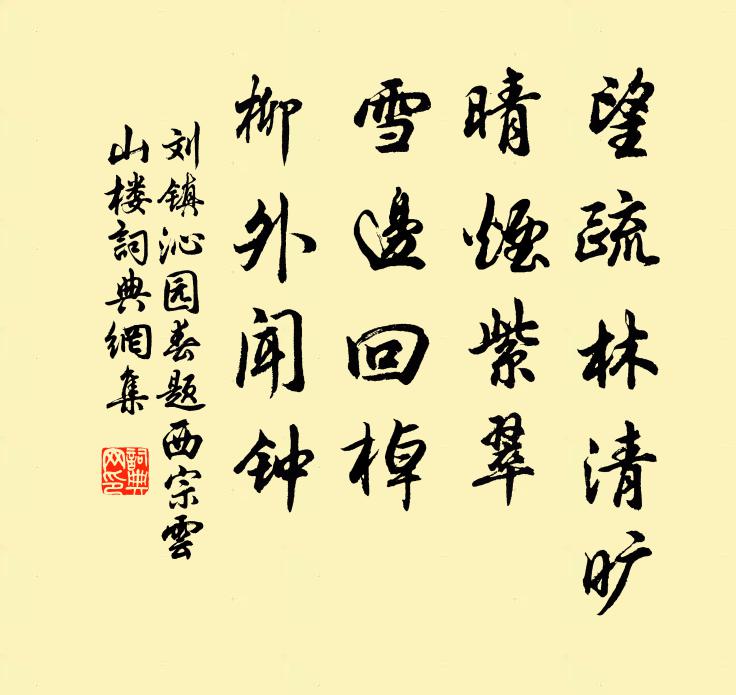 望疏林清旷
晴烟紫翠
雪邊回棹
柳外闻钟
刘镇沁园春题西宗雲
山楼詞典網集
詞典
网印